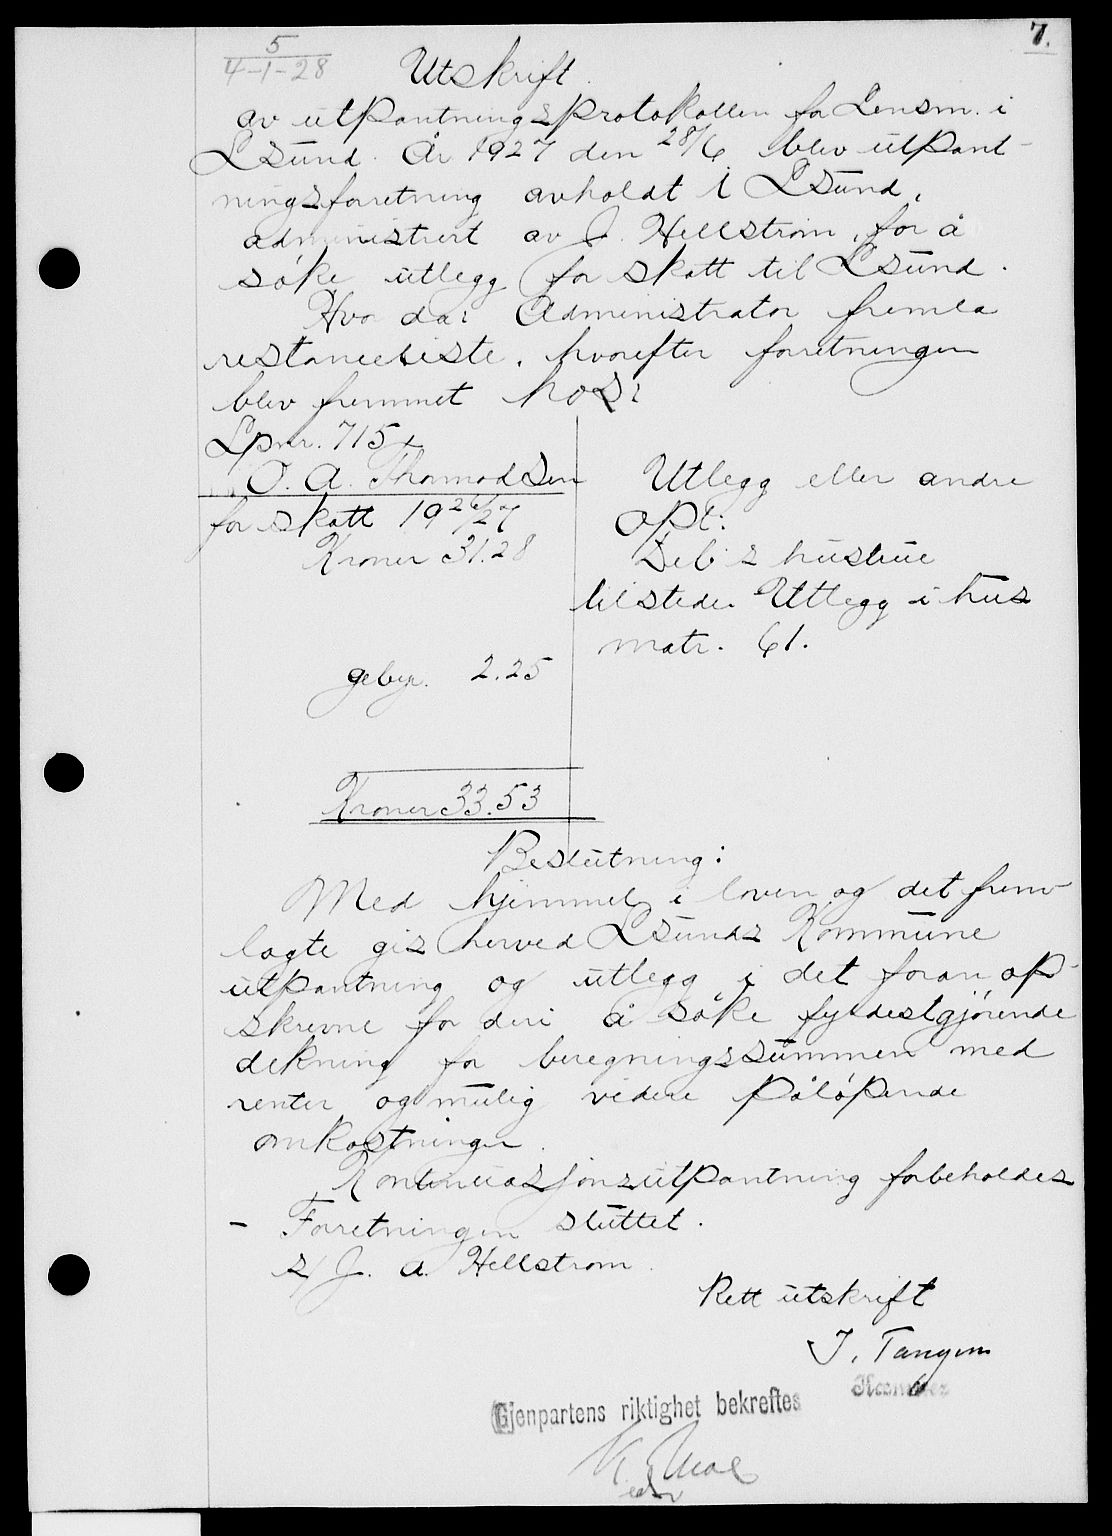 7.
5
4-1-28
Utskrift
av utpantningsprotokollen for Lensm. i
Lsund. År 1927 den 28/6 blev utpant-
ningsforretning avholdt i Lsund,
administrert av J. Hellstrøm, for å
søke utlegg for skatt til Lsund.
Hvor da: Administrator fremla
restanceliste, hvorefter forretningen
blev fremmet hos:
Lpnr. 715
O. A. Thomodsen
for skatt 1926/27
Kroner 31.28
gebyr. 2.25
Kroner 33.53
Utlegg eller andre
opl:
Deb's hustrue
tilstede. Utlegg i hus
matr. 61.
Beslutning:
Med hjemmel i loven og det frem-
lagte gis herved Lsunds Kommune
utpantning og utlegg i det foran op-
skrevne for deri å søke fyldestgjørende
dekning for beregningssummen med
renter og mulig videre påløpende
omkostninger.
Kontinuasjonsutpantning forbeholdes
- Forretningen sluttet.
s/ J. A. Hellstrøm.
Rett utskrift
J. Tangen
Gjenpartens riktighet bekreftes